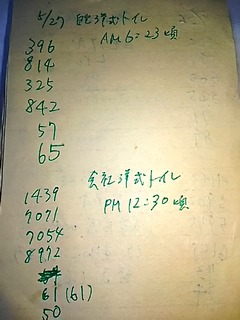 5/27 自宅洋式トイレ
AM 6:23頃
396
814
325
842
57
65
会社洋式トイレ
PM 12:30頃
1439
9071
7054
8972
61 (61)
50